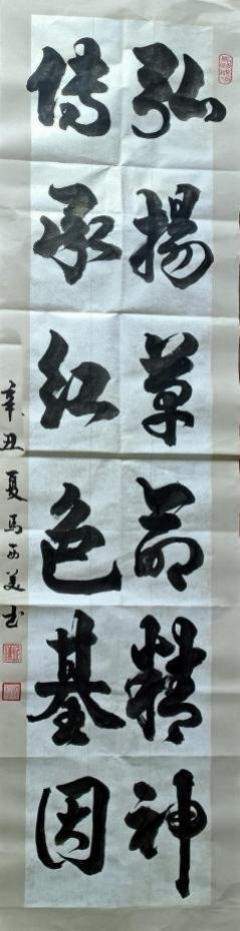 弘揚革命精神
傳承紅色基因
辛丑夏馬西美书